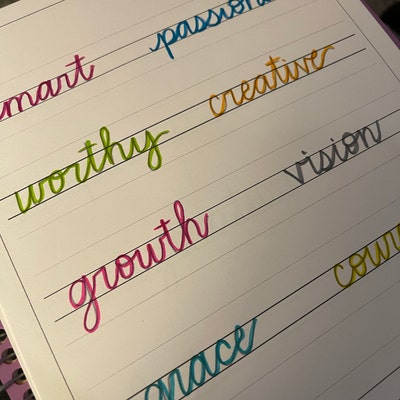 mart passion
worthy creative
growth vision
grace cour